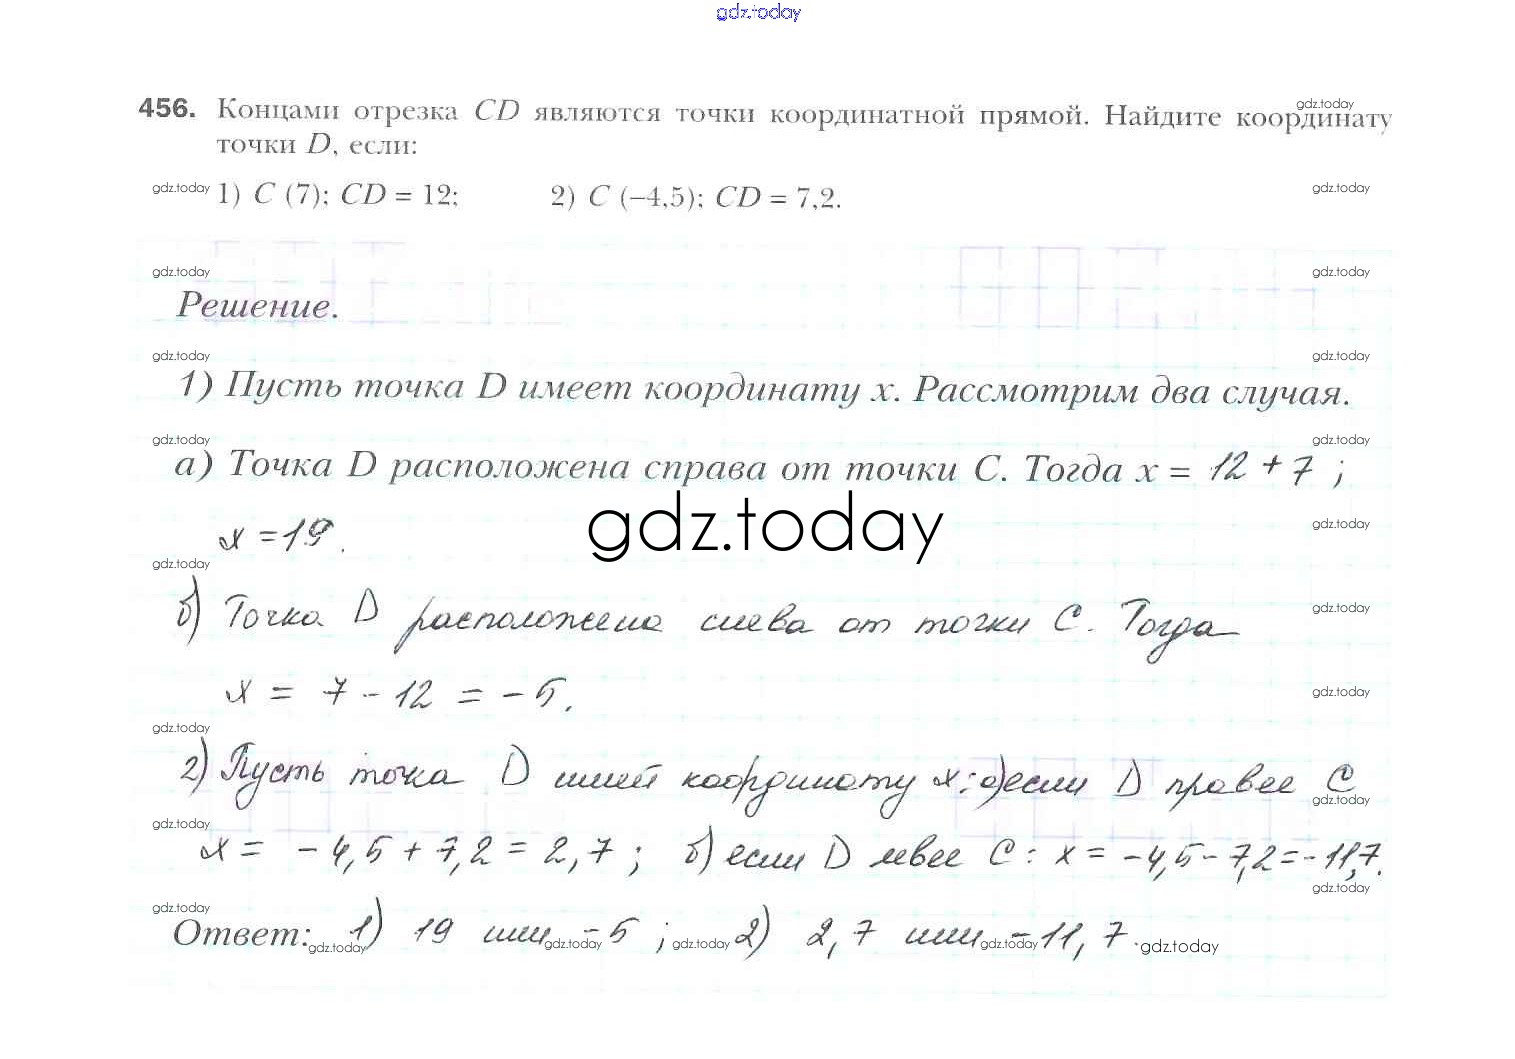 gdz.today
456. Концами отрезка CD являются точки координатной прямой. Найдите координату
gdz.today
точки D, если:
gdz.today 1) C (7); CD = 12; 2) C (−4,5); CD = 7,2. gdz.today
gdz.today gdz.today
Решение.
gdz.today gdz.today
1) Пусть точка D имеет координату x. Рассмотрим два случая.
gdz.today gdz.today
а) Точка D расположена справа от точки C. Тогда x = 12 + 7 ;
gdz.today gdz.today
x = 19.
gdz.today gdz.today
б) Точка D расположена слева от точки C. Тогда
x = 7 - 12 = - 5. gdz.today
gdz.today
2) Пусть точка D имеет координату x: а) если D правее C
gdz.today gdz.today
x = - 4,5 + 7,2 = 2,7 ; б) если D левее C : x = -4,5 - 7,2 = -11,7.
gdz.today gdz.today
Ответ: 1) 19 или -5 ; 2) 2,7 или -11,7.
gdz.today gdz.today gdz.today gdz.today gdz.today